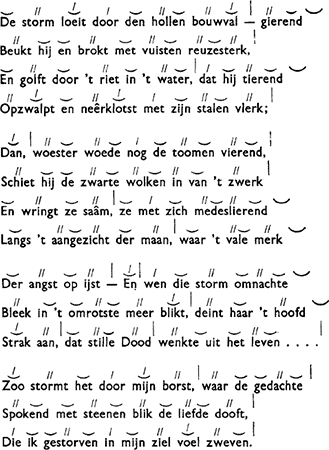 De storm loeit door den hollen bouwval — gierend
Beukt hij en brokt met vuisten reuzesterk,
En golft door 't riet in 't water, dat hij tierend
Opzwalpt en neêrklotst met zijn stalen vlerk;
Dan, woester woede nog de toomen vierend,
Schiet hij de zwarte wolken in van 't zwerk
En wringt ze saâm, ze met zich medeslierend
Langs 't aangezicht der maan, waar 't vale merk
Der angst op ijst — En wen die storm omnachte
Bleek in 't omrotste meer blikt, deint haar 't hoofd
Strak aan, dat stille Dood wenkte uit het leven . . . .
Zoo stormt het door mijn borst, waar de gedachte
Spokend met steenen blik de liefde dooft,
Die ik gestorven in mijn ziel voel zweven.